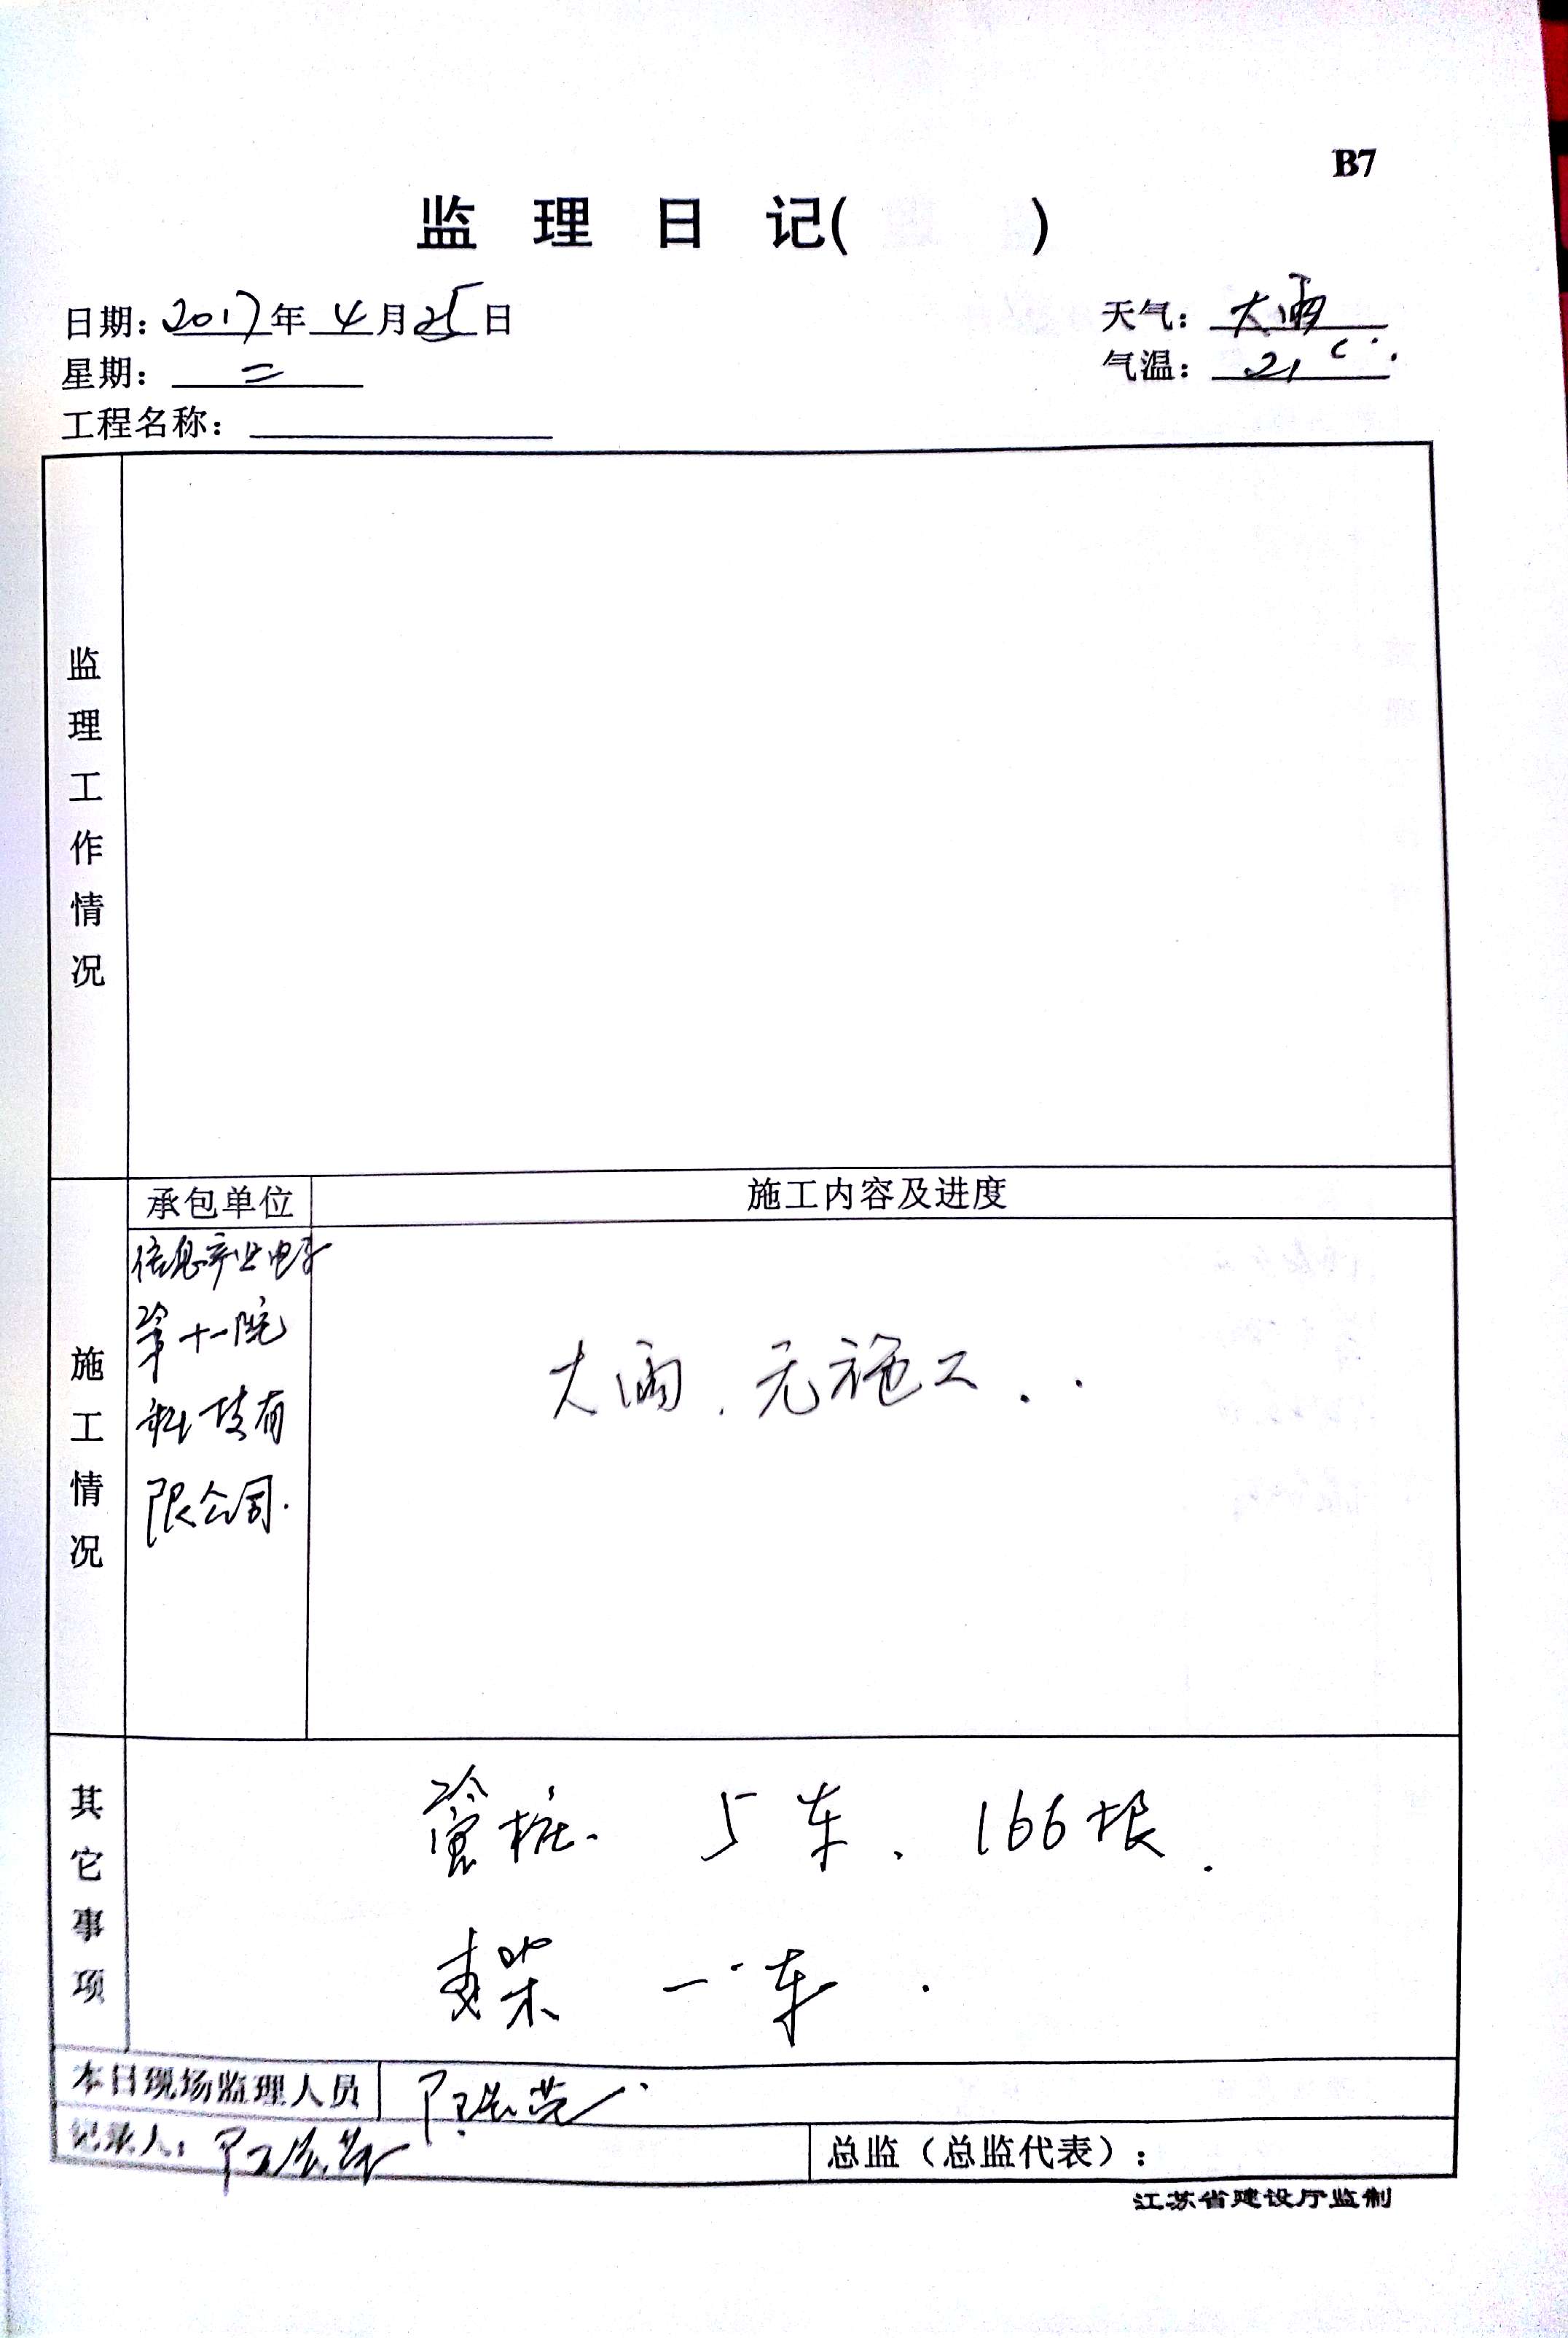 B7
监 理 日 记( )
日期: 2017年 4月25日
天气: 大雨
星期: 二
气温: 21 C
工程名称:
监理工作情况
承包单位
施工内容及进度
施工情况
信息产业电子
第十一院
科技有
限公司.
大雨.无施工..
其它事项
管桩. 5车. 166根.
支架 一车.
本日现场监理人员
记录人:
总监(总监代表):
江苏省建设厅监制